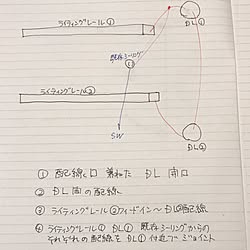 ライティングレール①
DL①
既存シーリング
ライティングレール②
DL②
SW
① 配線 口 兼ねた DL 開口
② DL 間の配線
③ ライティングレール② フィードイン〜 DL②配線
④ ライティングレール① DL① 既存シーリングからの
それぞれの配線を DL① 付近で ジョイント